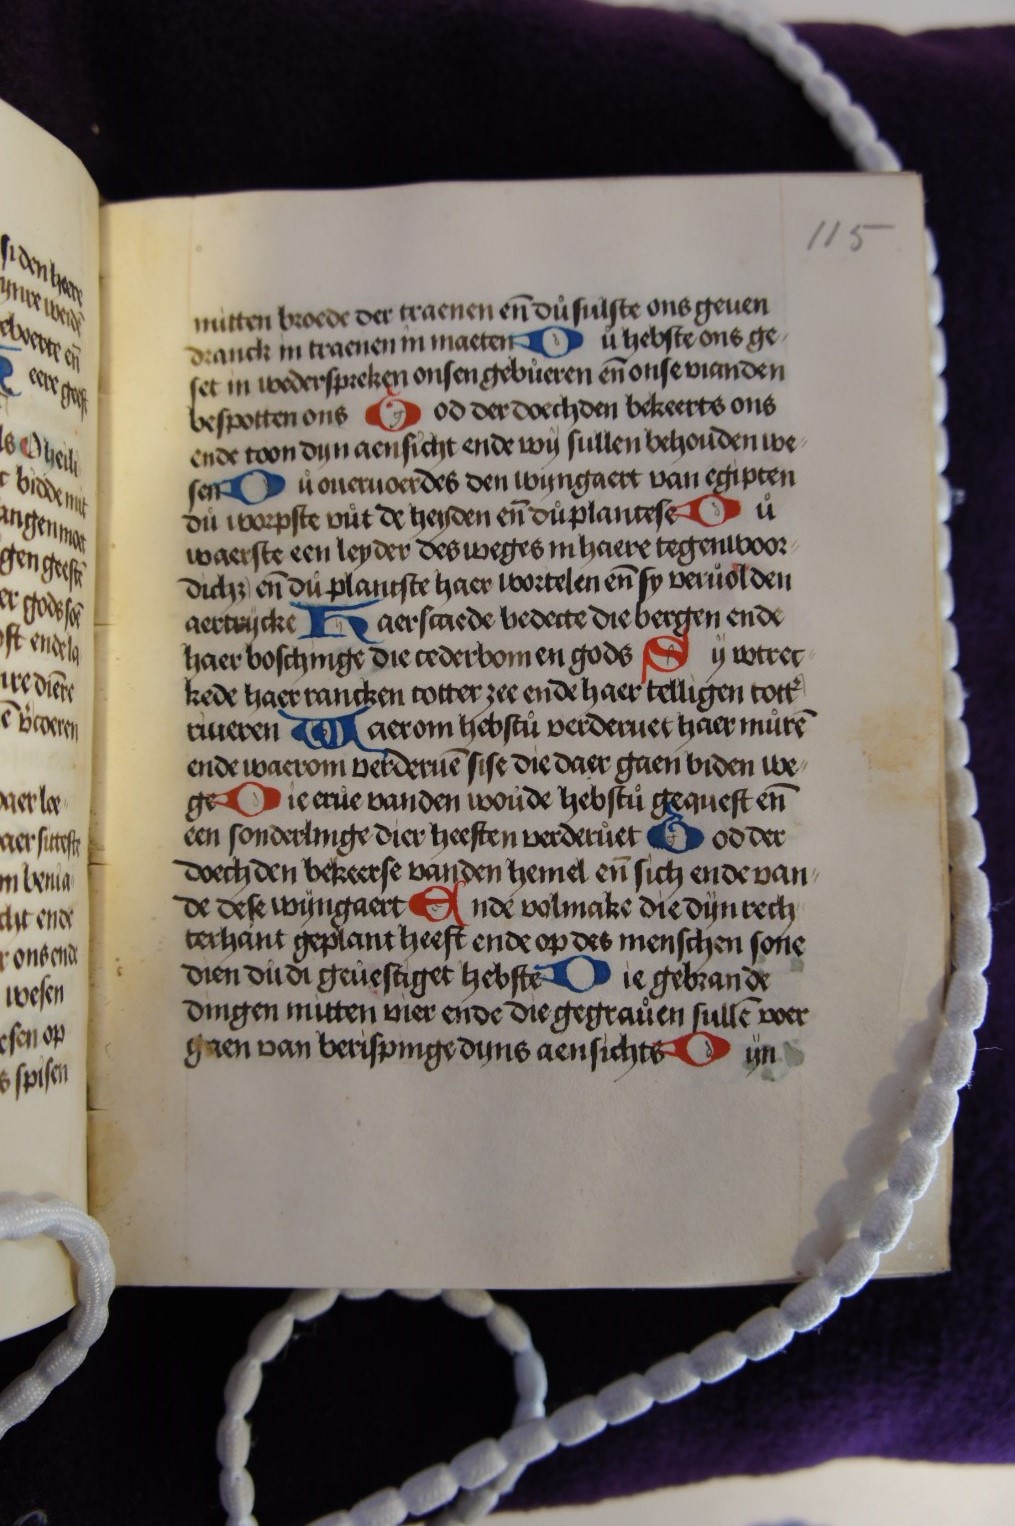 115
mitten broede der traenen en̄ dů sulste ons geuen
dranck in traenen in maeten D ů hebste ons ge-
set in wederspreken onsen gebůeren en̄ onse vianden
bespotten ons G od der doechden bekeerts ons
ende toon dyn aensicht ende wÿ sullen behouden we-
sen D ů oueruoerdes den wyngaert van egipten
dů worpste vůt de heyden en̄ dů plantese D ů
waerste een leyder des weges in haere tegenwoor-
dichz en̄ dů plantste haer wortelen en̄ sy veruůlden
aertrijcke H aer scaede bedecte die bergen ende
haer boschinge die cederbomen gods S ÿ wtrec-
kede haer rancken totter zee ende haer telligen tott
riuieren W aerom hebstů verderuet haer můrē
ende waerom verderuē sise die daer gaen biden we-
ge D ie erůe vanden woůde hebstů gequest en̄
een sonderlinge dier heeften verderůet G od der
doechden bekeerse van den hemel en̄ sich ende van-
de dese wijngaert E nde volmake die dÿn rech
terhant geplant heeft ende op des menschen sone
dien dů di geůestiget hebste D ie gebrande
dingen mitten vier ende die gegraůen sullē voer
gaen van berispinge dyns aensichts D ÿn
si den heere
geboerte en̄
eere geest
O heili
bidde mit
angen moet
gen geestē
ende la
ure diēre
daer sittest
m benia
dit ende
ons ende
wesen
esen op
s spisen